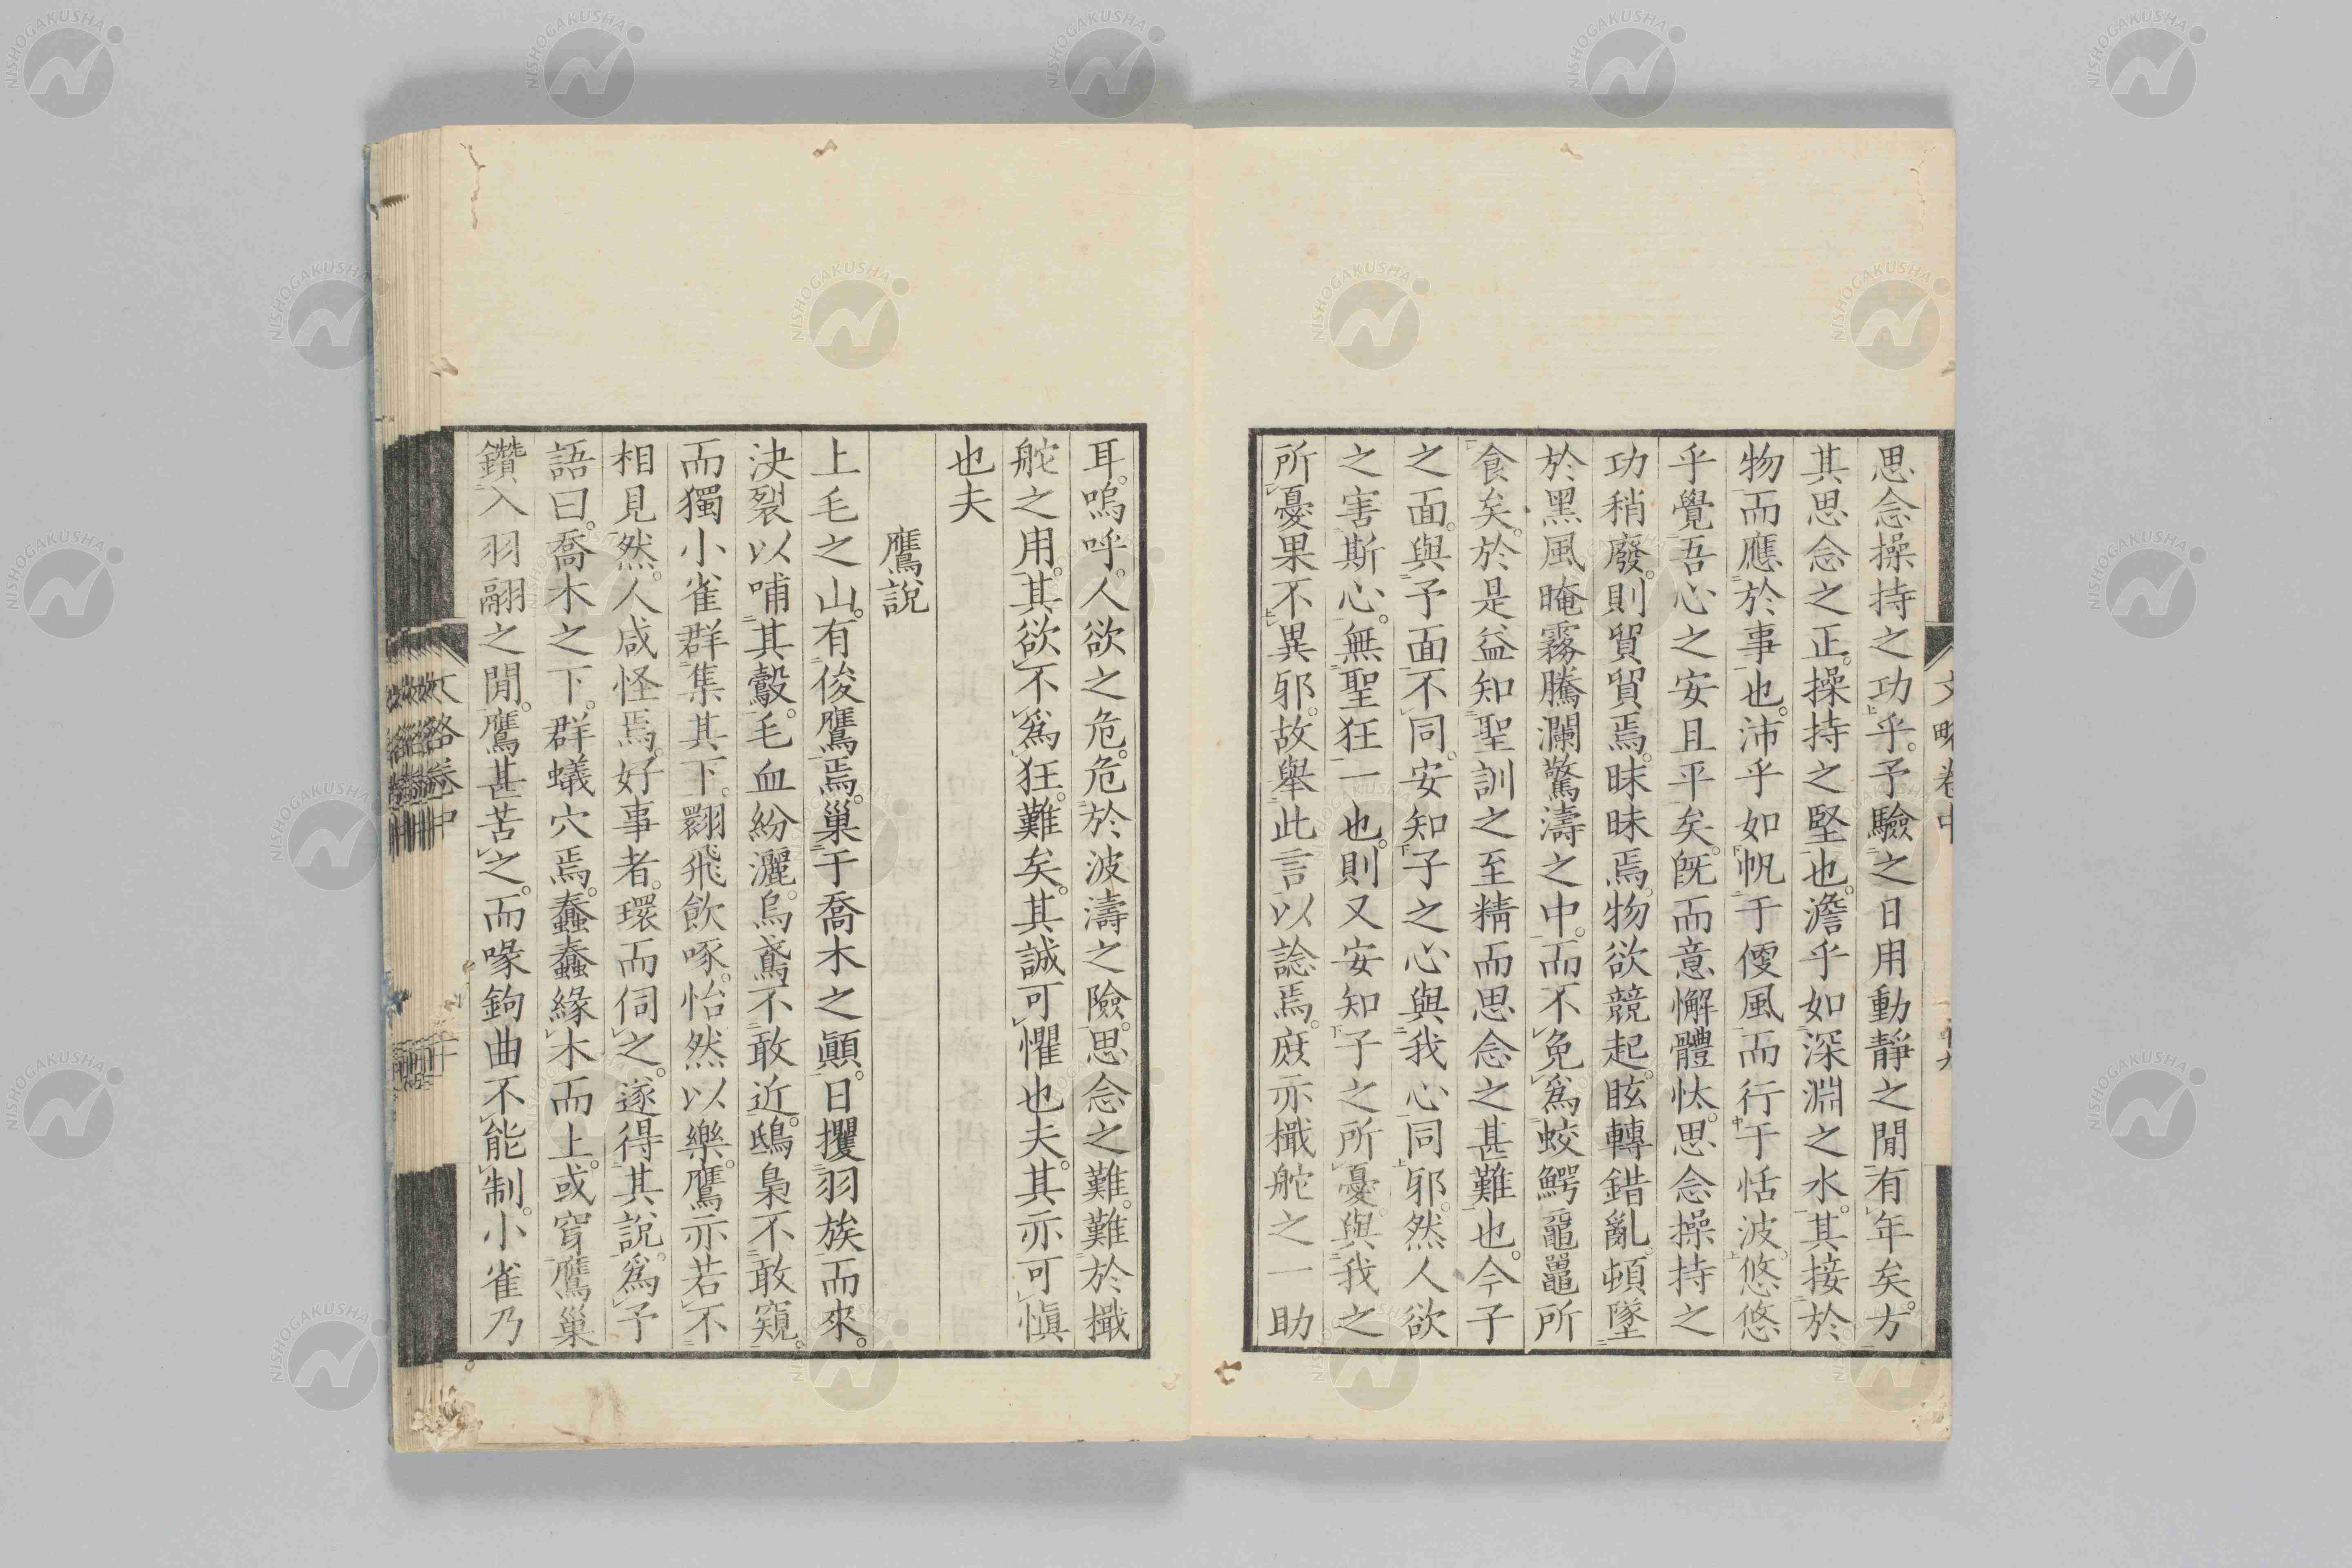 思念操持之功乎。予驗之日用動靜之間有年矣。方
其思念之正。操持之堅也。澹乎如深淵之水。其接於
物而應於事也。沛乎如帆于便風而行于恬波。悠悠
乎覺吾心之安且平矣。旣而意懈體怢。思念操持之
功稍廢。則貿貿焉。昧昧焉。物欲競起。眩轉錯亂。頓墜
於黑風晻霧騰瀾驚濤之中。而不免爲蛟鰐黿鼉所
食矣。於是益知聖訓之至精而思念之甚難也。今子
之面。與予面不同。安知子之心與我心同邪。然人欲
之害斯心。無聖狂一也。則又安知子之所憂與我之
所憂果不異邪。故舉此言以諗焉。庶亦檝舵之一助
耳。嗚呼。人欲之危。危於波濤之險。思念之難。難於檝
舵之用。其欲不爲狂。難矣。其誠可懼也夫。其亦可愼
也夫
鷹說
上毛之山。有俊鷹焉。巢于喬木之顚。日攫羽族而來。
決裂以哺其鷇。毛血紛灑。烏鳶不敢近。鴟梟不敢窺。
而獨小雀群集其下。翾飛飲啄。怡然以樂。鷹亦若不
相見然。人咸怪焉。好事者。環而伺之。遂得其說。爲予
語曰。喬木之下。群蟻穴焉。蠢蠢緣木而上。或穿鷹巢
鑽入羽翮之間。鷹甚苦之。而喙鉤曲不能制。小雀乃
文略卷中
十九
文略卷中